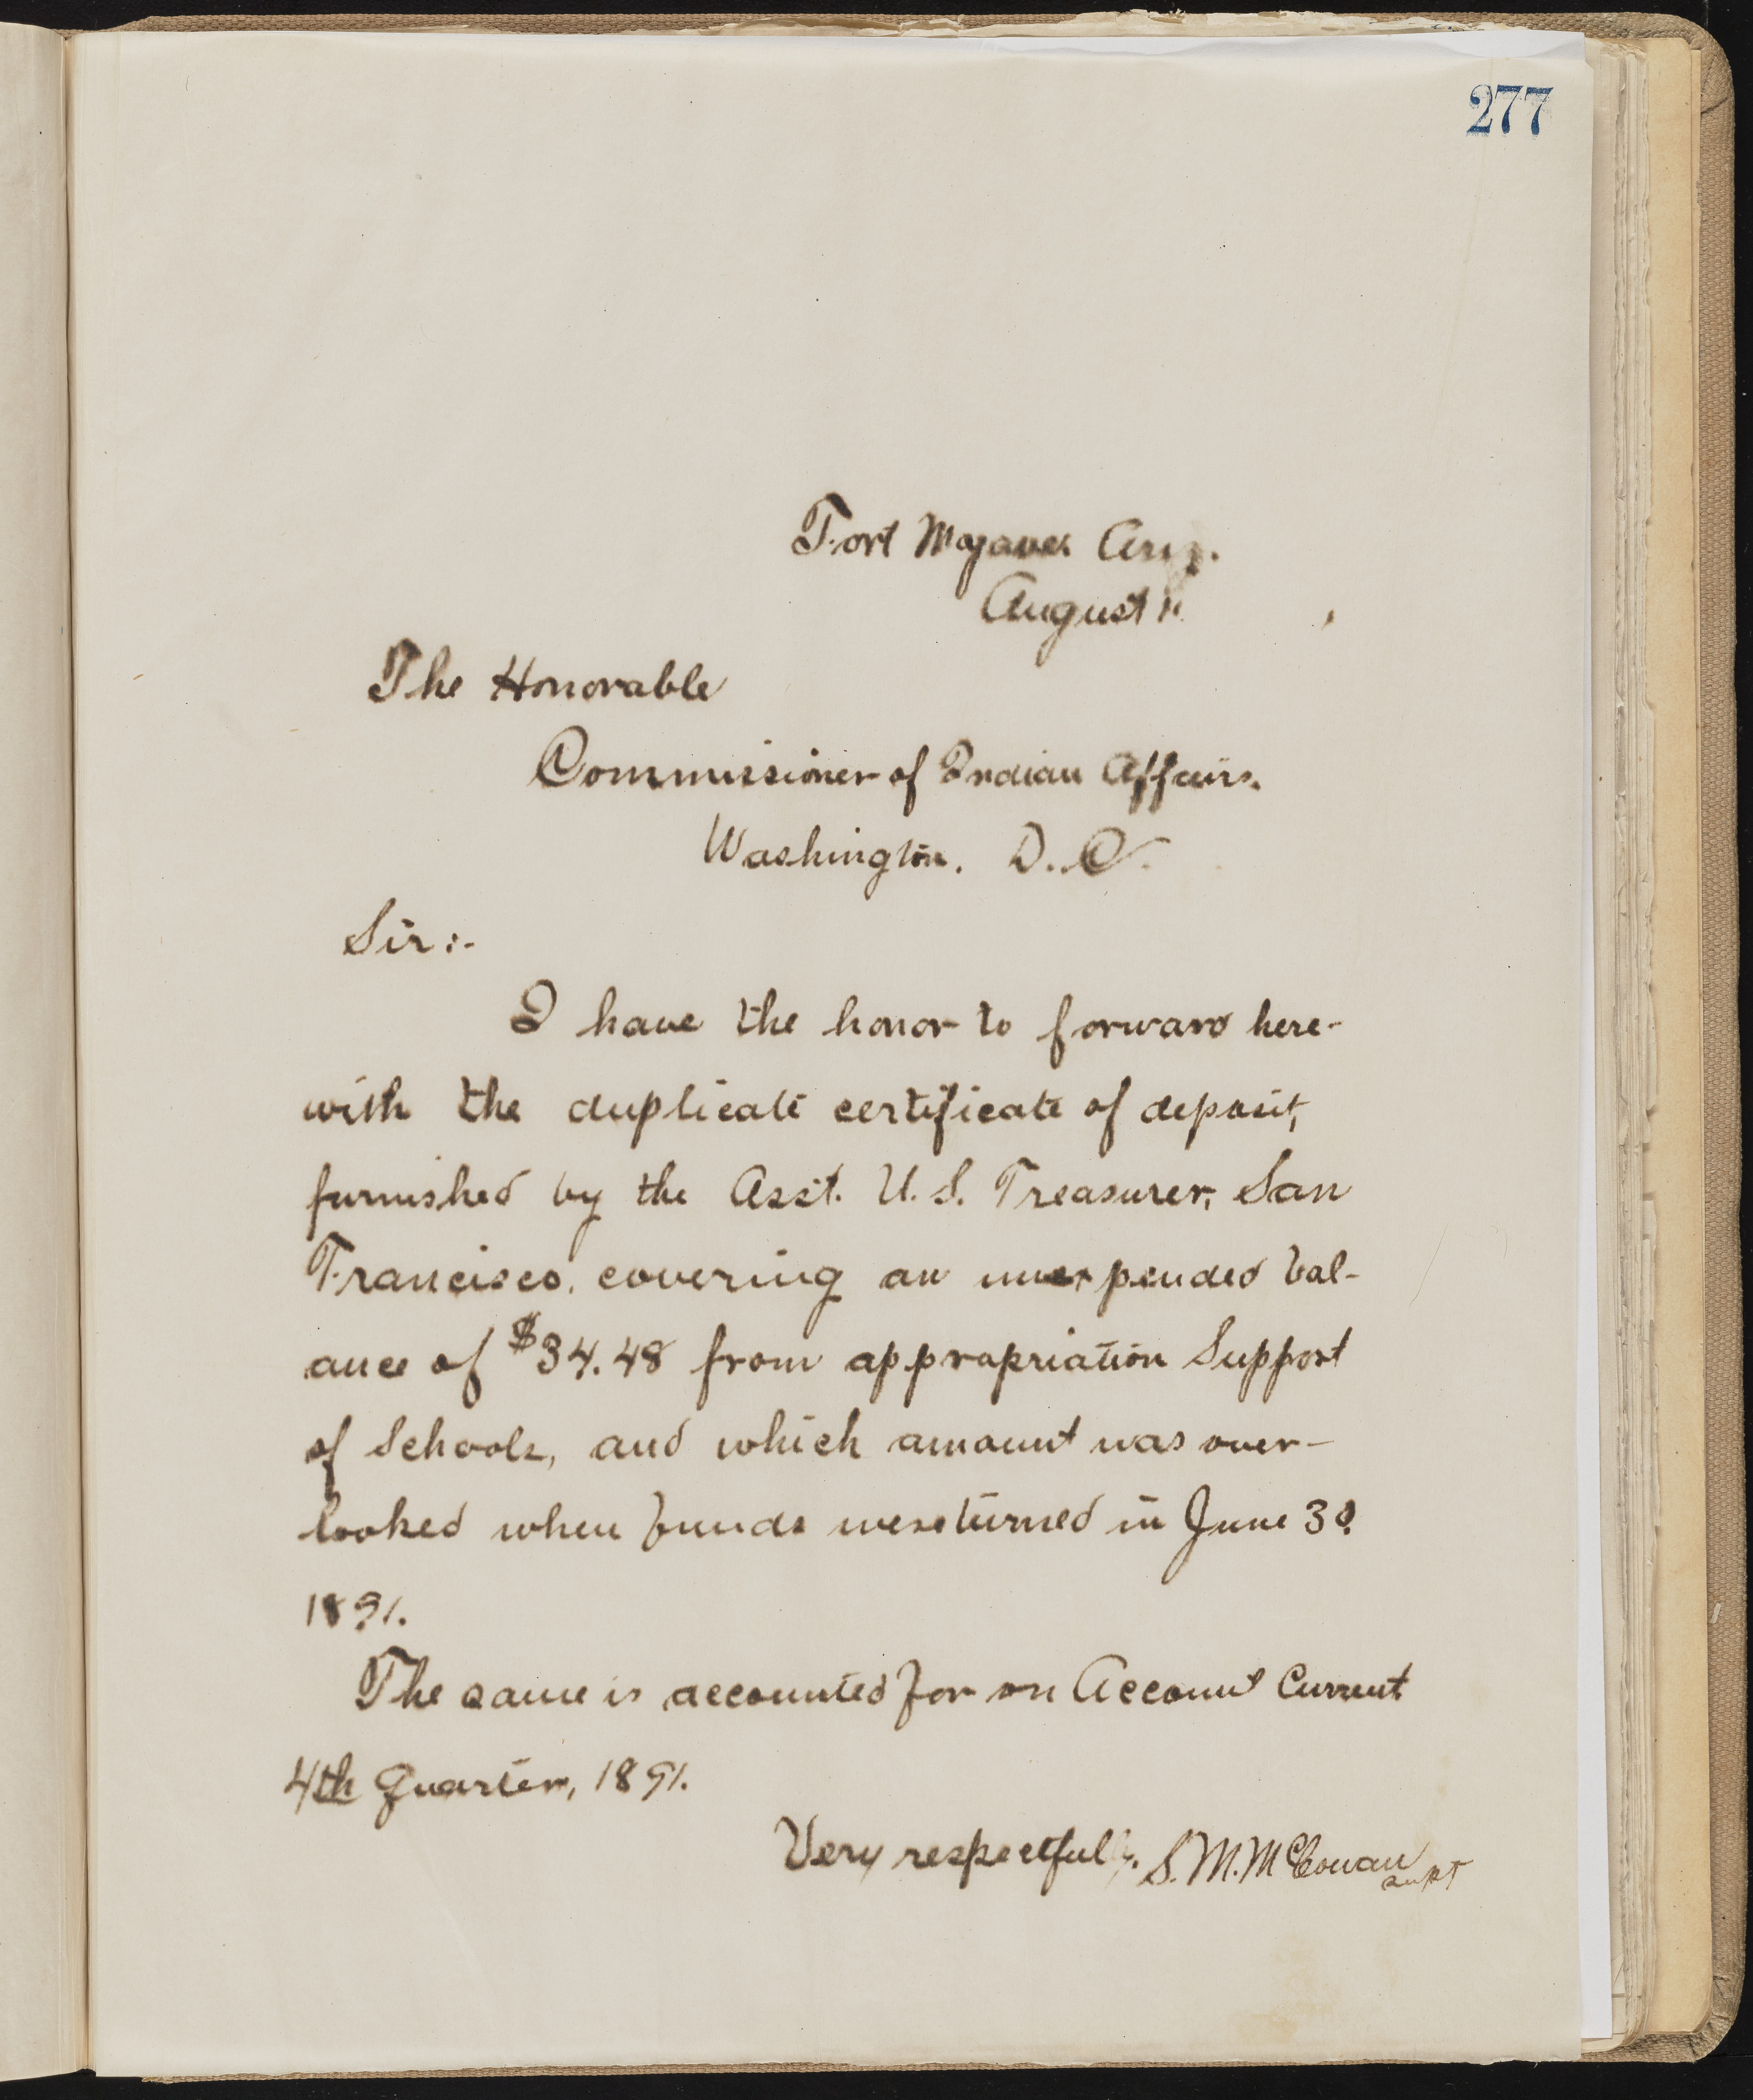 277
Fort Mojave Ariz.
August
The Honorable
Commissioner of Indian Affairs.
Washington. D.C.
Sir:-
I have the honor to forward here-
with the duplicate certificate of deposit,
furnished by the Asst. U.S. Treasurer, San
Francisco, covering an unexpended bal-
ance of $34.48 from appropriation Support
of Schools, and which amount was over-
looked when funds were turned in June 30.
1891.
The same is accounted for on Account Current
4th Quarter, 1891.
Very respectfully, S.M. McCowan
Supt